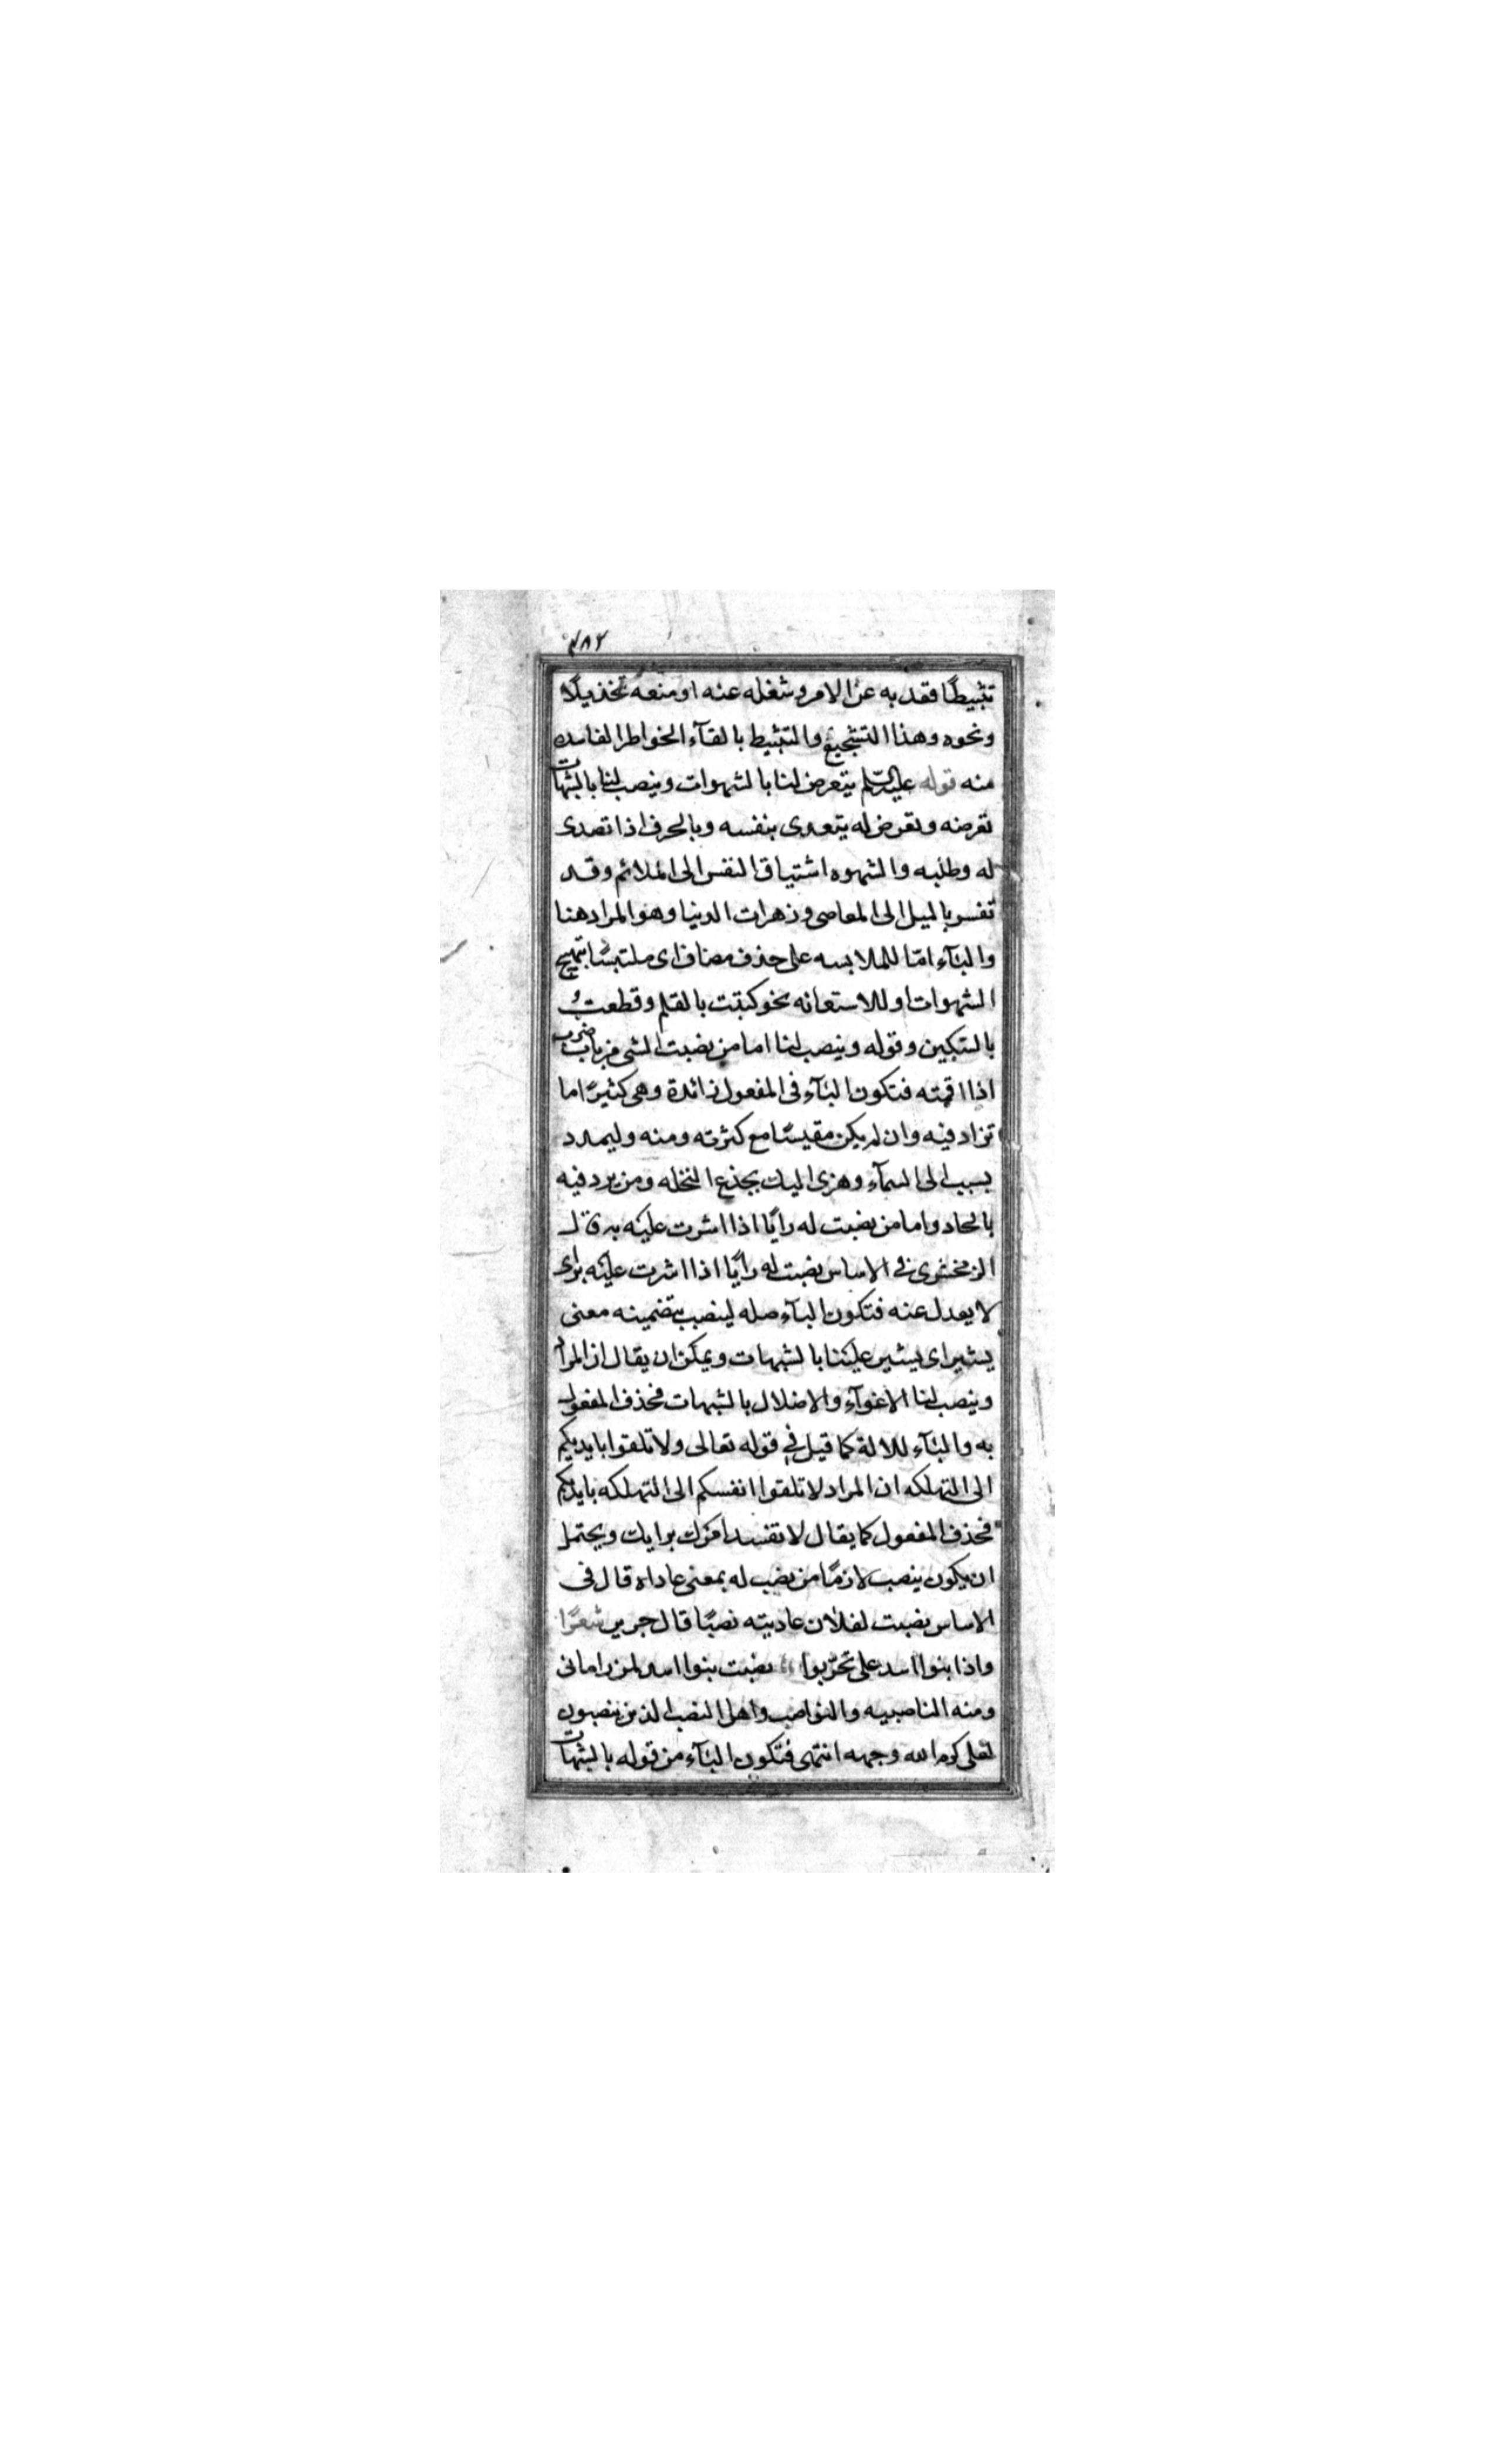 ٤٨٢
تثبيطًا فقد به عن الامر وشغله عنه او منعه تخذيلًا
ونحوه وهذا التشجيع والتثبيط بالقآء الخواطر الفاسده
منه قوله عليه السّلم يتعرض لنا بالشهوات وينصب لنا بالشبهات
تعرضه وتعرض له يتعدى بنفسه وبالحرف اذا تصدى
له وطلبه والشهوه اشتياق النفس الى الملائم وقد
تفسر بالميل الى المعاصى وزهرات الدنيا وهو المراد هنا
والبآء امّا للملابسه على حذف مضاف اى ملتبسًا بتهييج
الشهوات او للاستعانه نحو كتبت بالقلم وقطعت
بالسكين وقوله وينصب لنا اما من نصبت الشى من باب ضرب
اذا اقمته فتكون البآء فى المفعول زائدة وهى كثيرًا ما
تزاد فيه وان لم يكن مقيسًا مع كثرته ومنه وليمدد
بسبب الى السمآء وهزى اليك بجذع النخله ومن يرد فيه
بالحاد واما من نصبت له رايًا اذا اشرت عليه به قال
الزمخشرى فى الاساس نصبت له رايًا اذا اشرت عليه براى
لا يعدل عنه فتكون البآء صله لينصب بتضمينه معنى
يشير اى يشير علينا بالشبهات ويمكن ان يقال ان المراد
وينصب لنا الاغوآء والاضلال بالشبهات فحذف المفعول
به والبآء للالة كما قيل فى قوله تعالى ولا تلقوا بايديكم
الى التهلكه ان المراد لا تلقوا انفسكم الى التهلكه بايديكم
فحذف المفعول كما يقال لا تفسد امرك برايك ويحتمل
ان يكون ينصب لازمًا من نصب له بمعنى عاداه قال فى
الاساس نصبت لفلان عاديته نصبًا قال جرير شعرًا
واذا بنوا اسد على تحزّبوا نصبت بنوا اسد لمن رامانى
ومنه الناصبيه والنواصب واهل النصب الذين ينصبون
لعلى كرم الله وجهه انتهى فتكون البآء من قوله بالشبهات